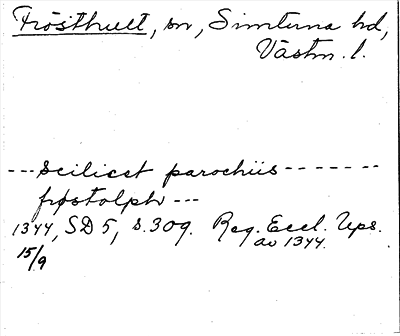 Frösthult, sn, Simtuna hd,
Västm. l.
---scilicet parochiis-------
frøstolph---
1344, SD 5, s. 309. Reg. Eccl. Ups.
av 1344.
15/9